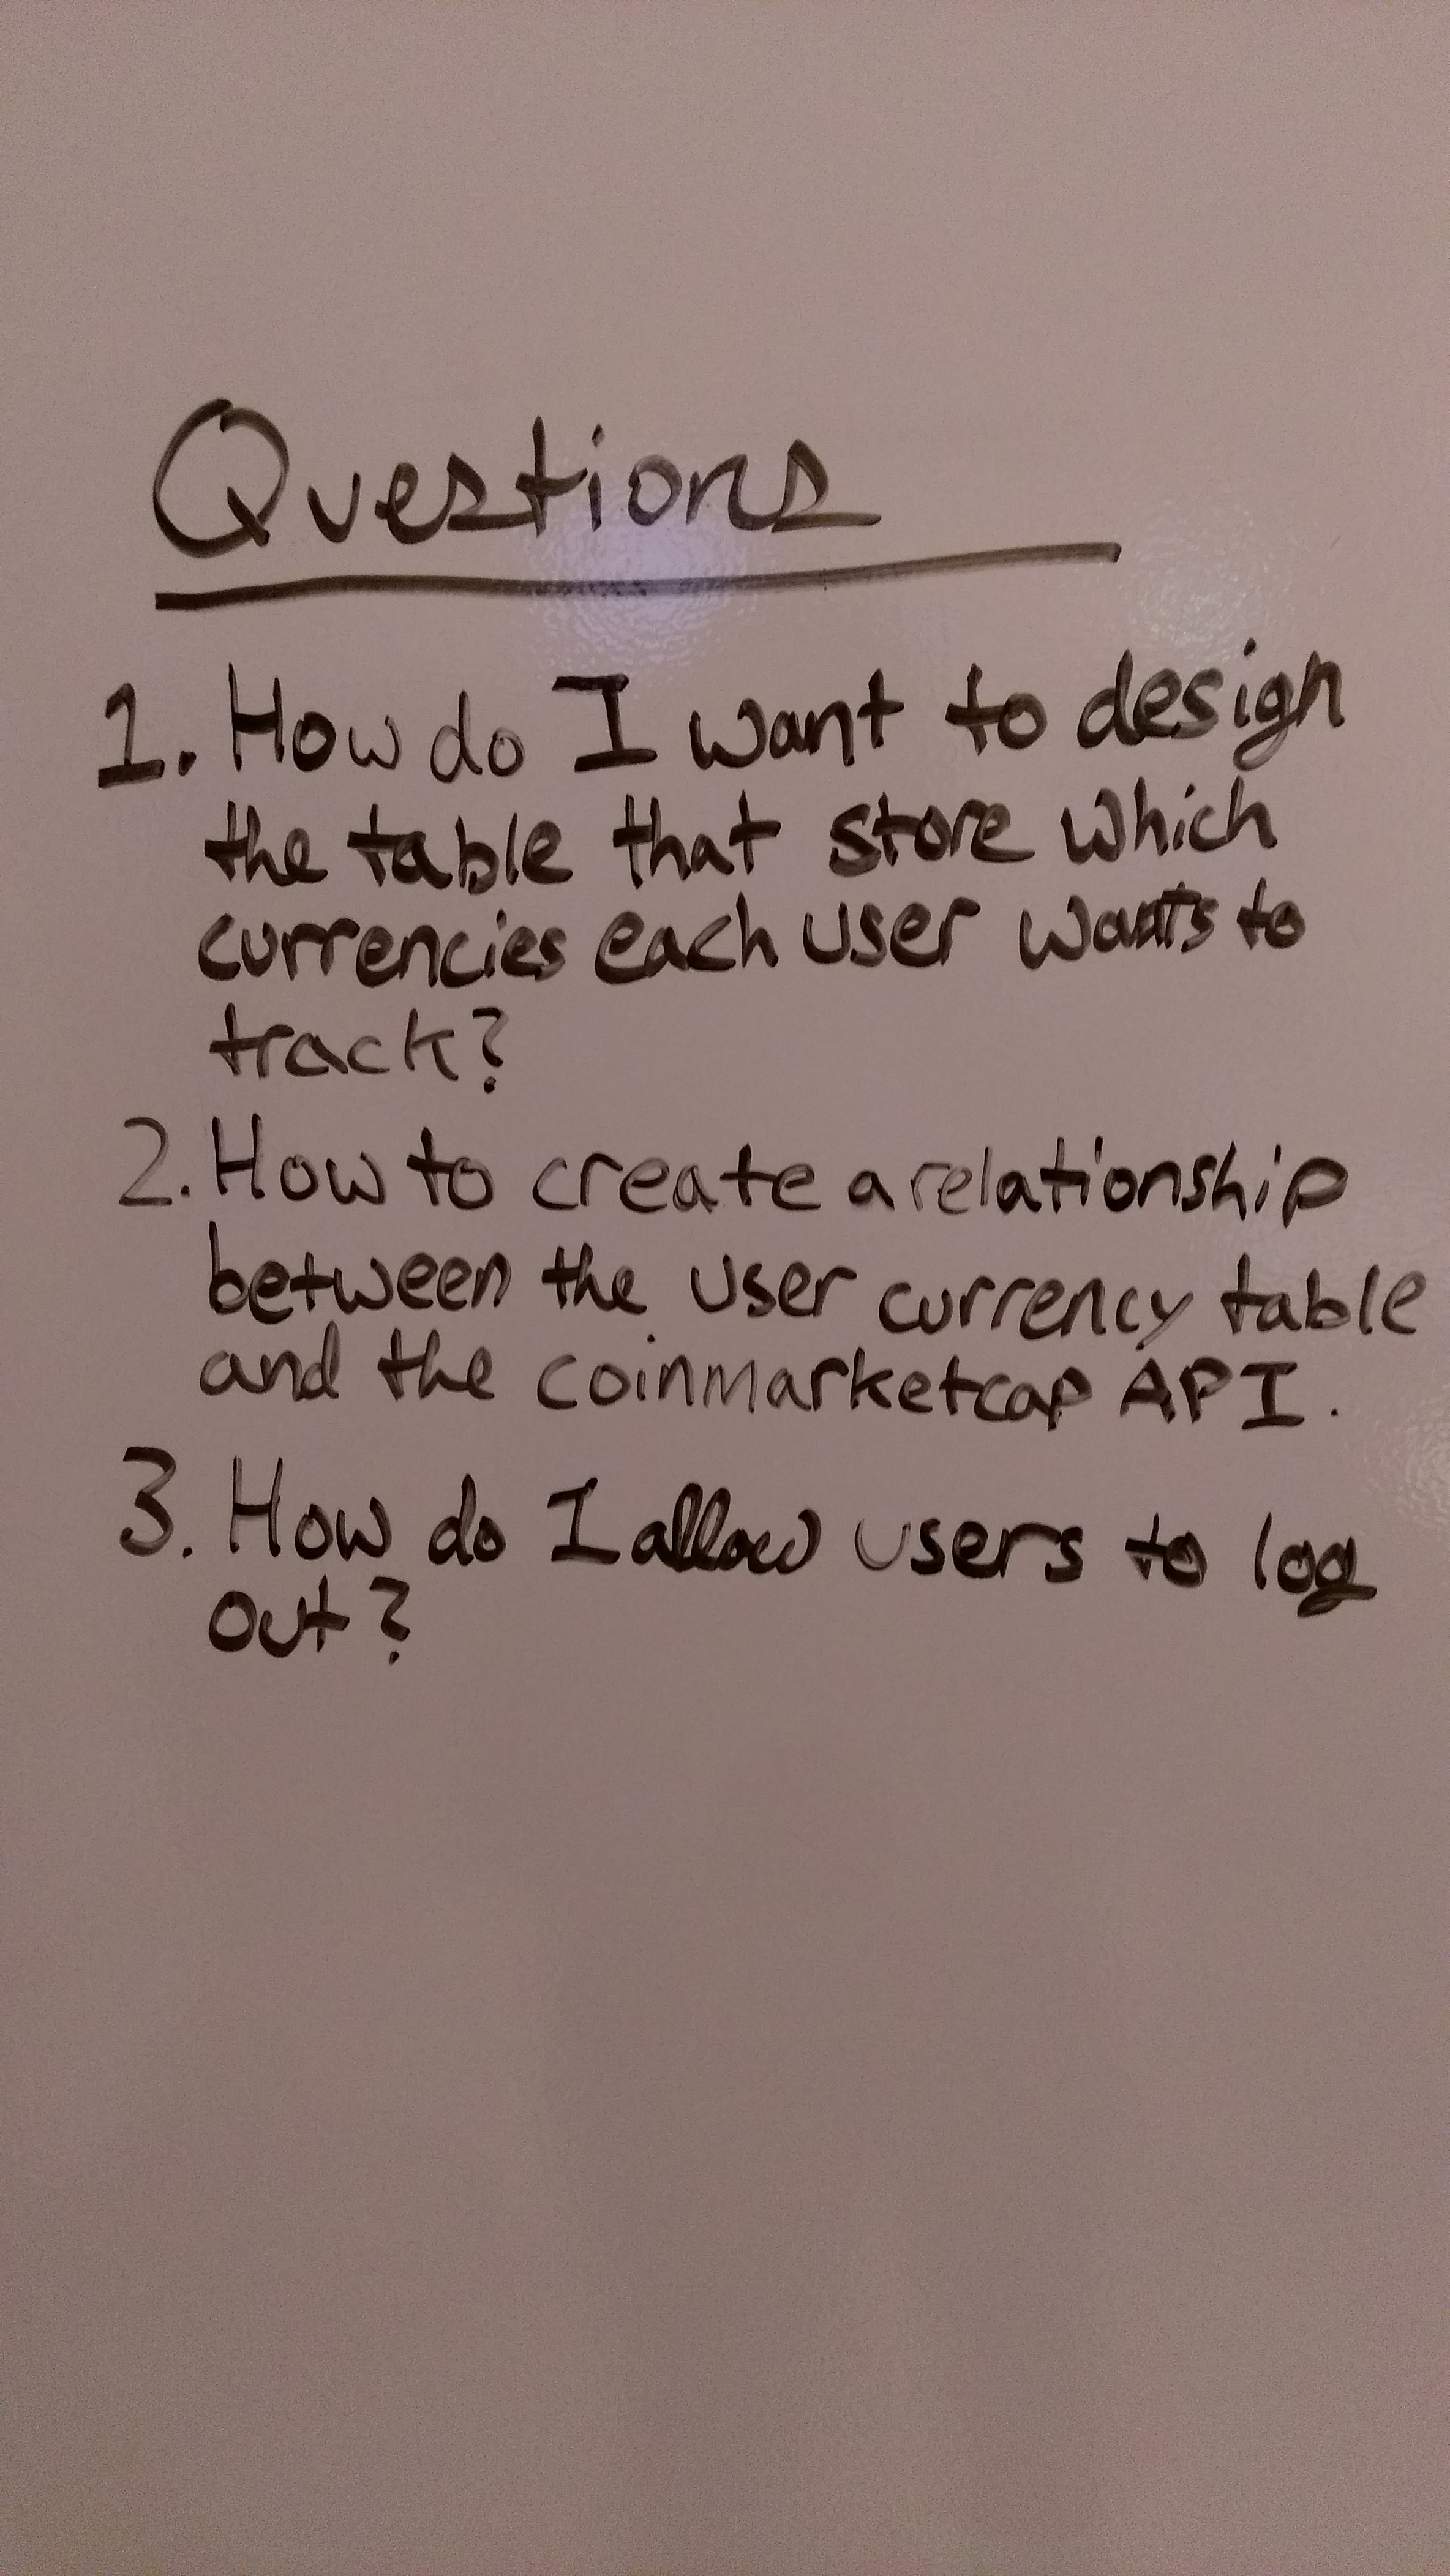 Questions
1. How do I want to design
the table that store which
currencies each user wants to
track?
2. How to create a relationship
between the user currency table
and the coinmarketcap API.
3. How do I allow users to log
out?